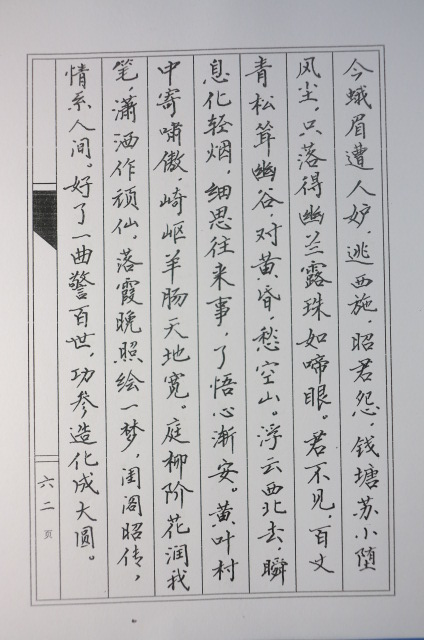 今蛾眉遭人妒，逃西施，昭君怨，钱塘苏小堕
风尘，只落得幽兰露珠如啼眼。君不见，百丈
青松笼幽谷，对黄昏，愁空山。浮云西北去，瞬
息化轻烟，细思往来事，了悟心渐安。黄叶村
中寄啸傲，崎岖羊肠天地宽。庭柳阶花润我
笔，潇洒作顽仙。落霞晚照绘一梦，闺阁昭传，
情系人间。好了一曲警百世，功参造化成大圆。
六二页